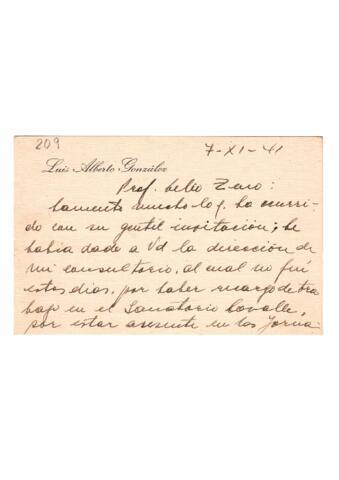 209
7-XI-41
Luis Alberto González
Prof. Celio Zeno:
Lamento mucho lo q. ha ocurri-
do con su gentil invitación; le
habia dado a Vd la dirección de
mi consultorio, al cual no fuí
estos dias, por haber recargo de tra
bajo en el Sanatorio Lavalle,
por estar ausente en las Jorna-